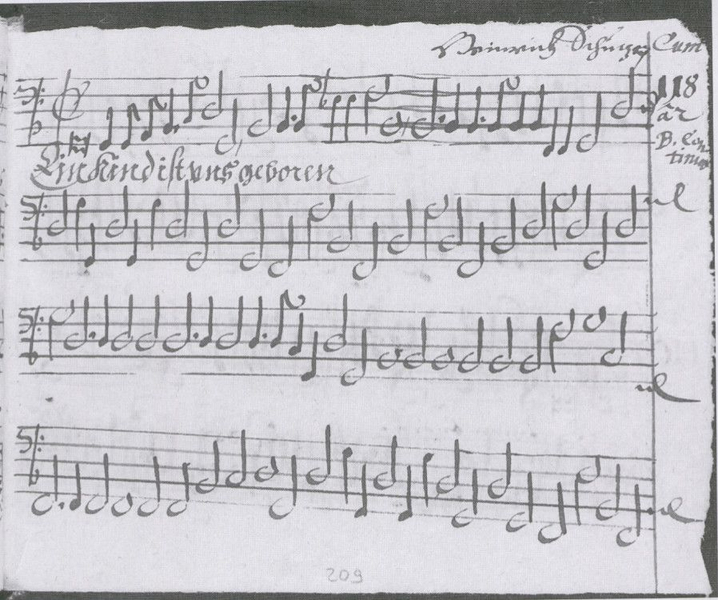 Heinrich Schütz Cum
118
är
B. Con
tinuo
Ein Kind ist uns geboren
209